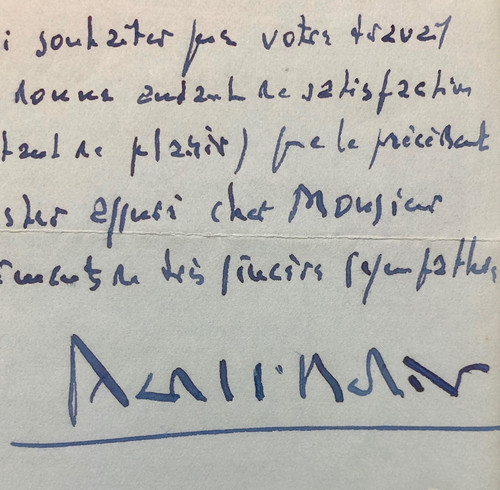 i souhaiter que votre travail
donne autant de satisfaction
tant de plaisir) que le précédent
ster assuré cher Monsieur
iments de très sincère sympathie